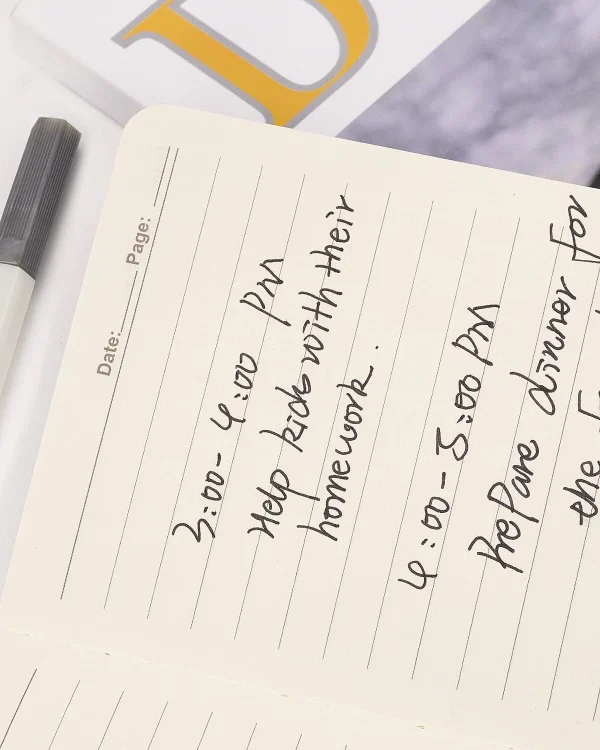 D
Date: Page:
3:00-4:00 PM
Help kids with their
homework.
4:00-5:00 PM
Prepare dinner for
the